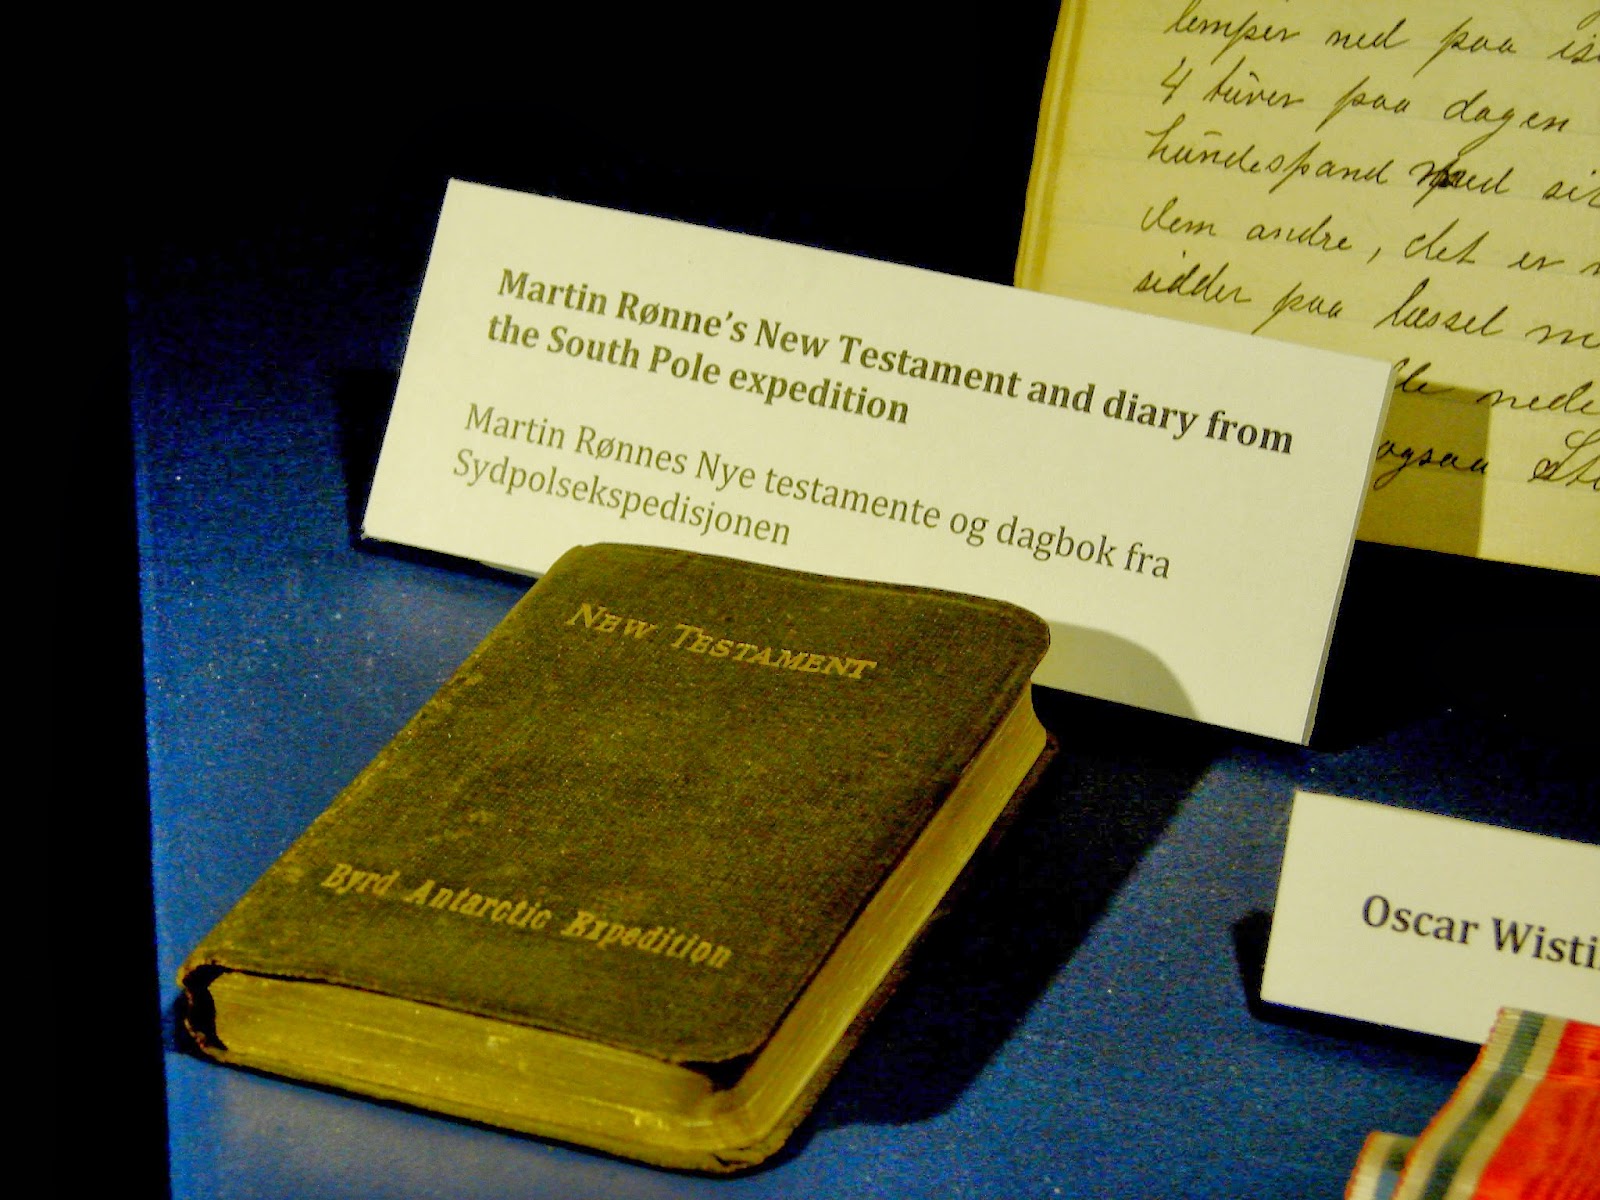 lemper ned paa
4 turer paa dagen
hundespand med
dem andre, det er
sidder paa læsset
nede
ogsaa
Martin Rønne's New Testament and diary from
the South Pole expedition
Martin Rønnes Nye testamente og dagbok fra
Sydpolsekspedisjonen
NEW TESTAMENT
Byrd Antarctic Expedition
Oscar Wisti